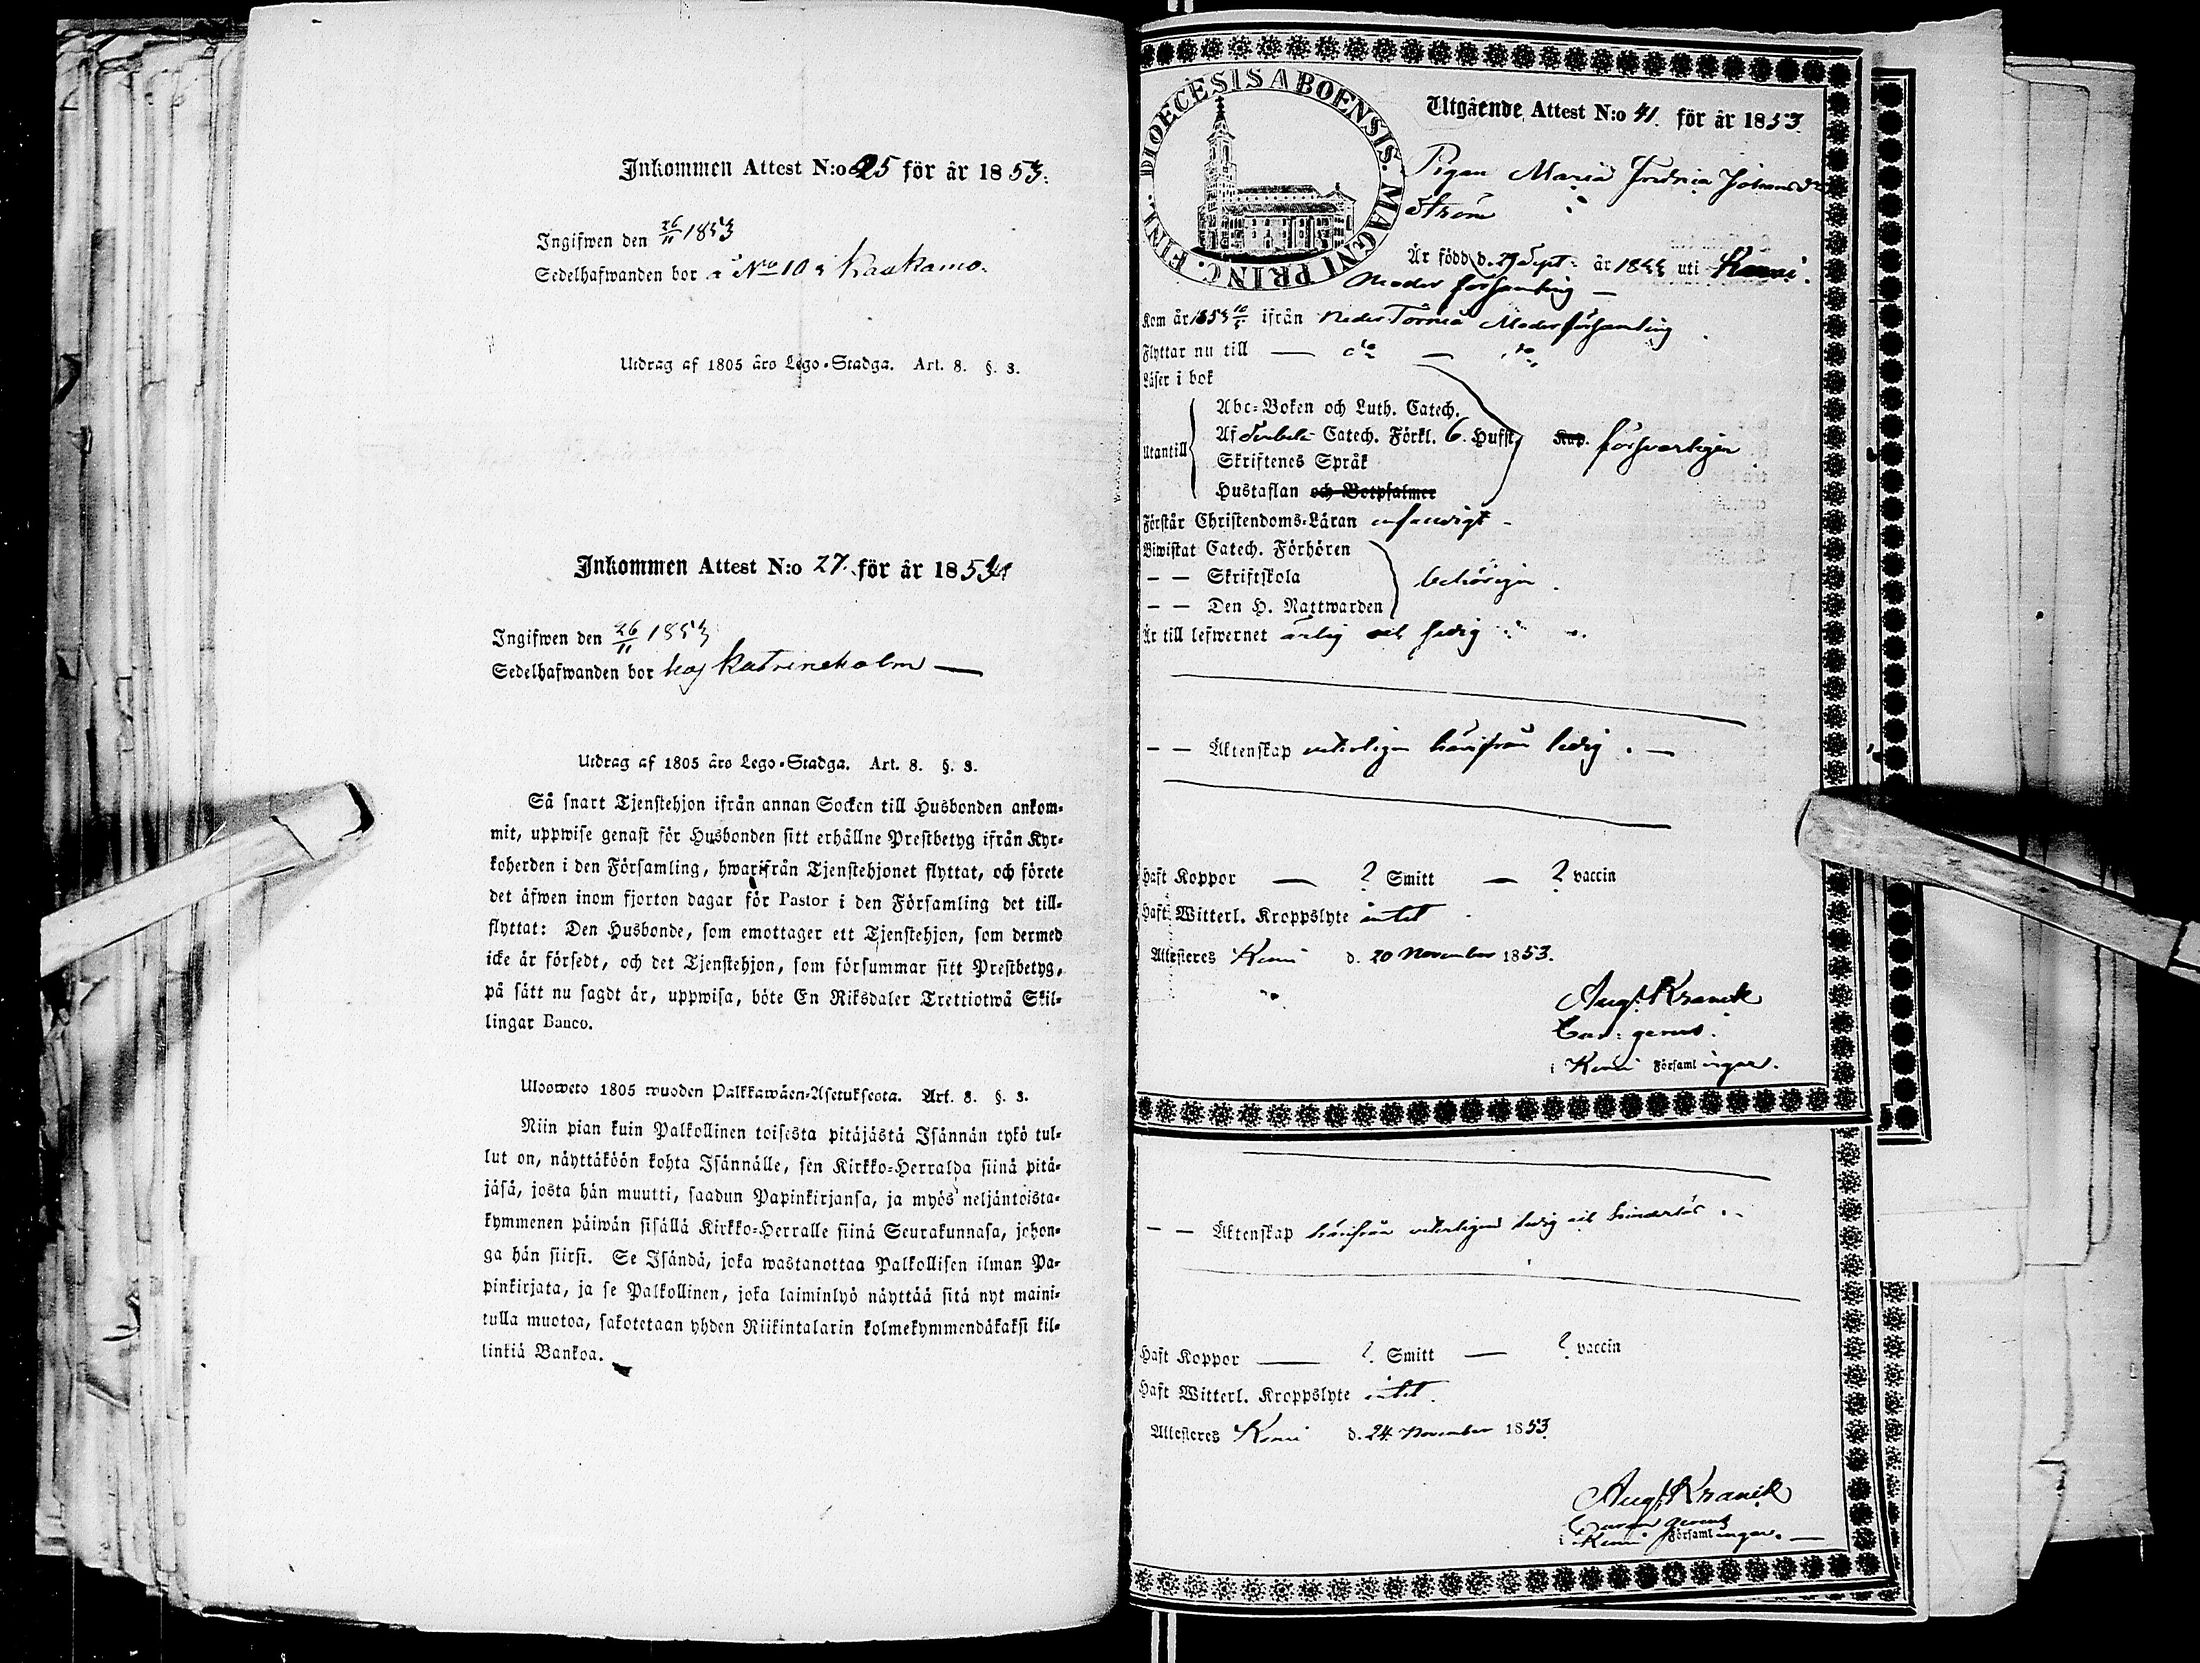 Inkommen Attest N:o 25 för år 1853.
Ingifwen den 26/11 1853
Sedelhafwanden bor å No 10 i Kaakamo.
Utdrag af 1805 års Lego-Stadga. Art. 8. §. 3.
Inkommen Attest N:o 27. för år 1853
Ingifwen den 26/11 1853
Sedelhafwanden bor hos Katrineholm —
Utdrag af 1805 års Lego-Stadga. Art. 8. §. 3.
Så snart Tjenstehjon ifrån annan Socken till Husbonden ankom-
mit, uppwise genast för Husbonden sitt erhållne Prestbetyg ifrån Kyr-
koherden i den Församling, hwarifrån Tjenstehjonet flyttat, och förete
det äfwen inom fjorton dagar för Pastor i den Församling det till-
flyttat: Den Husbonde, som emottager ett Tjenstehjon, som dermed
icke är försedt, och det Tjenstehjon, som försummar sitt Prestbetyg,
på sätt nu sagdt är, uppwisa, böte En Riksdaler Trettiotwå Skil-
lingar Banco.
Ulosweto 1805 wuoden Palkkawäen-Asetuksesta. Art. 8. §. 3.
Niin pian kuin Palkollinen toisesta pitäjästä Isännän tykö tul-
lut on, näyttäköön kohta Isännälle, sen Kirkko-Herralda siinä pitä-
jäsä, josta hän muutti, saadun Papinkirjansa, ja myös neljäntoista-
kymmenen päiwän sisällä Kirkko-Herralle siinä Seurakunnasa, johon-
ga hän siirsi. Se Isändä, joka wastanottaa Palkollisen ilman Pa-
pinkirjata, ja se Palkollinen, joka laiminlyö näyttää sitä nyt maini-
tulla muotoa, sakotetaan yhden Riikintalarin kolmekymmendäkaksi kil-
linkiä Bankoa.
DIOECESIS ABOENSIS. MAGNI PRINC. FINL.
Utgående Attest N:o 41. för år 1853.
Pigan Maria Johansdr
Ström
Är född d. 29 Sept. år 18 uti Kemi.
Moder församling —
Kom år 1853 ifrån Neder Torneå Moderförsamling
Flyttar nu till — do — do
Läser i bok
Utantill
Abc-Boken och Luth. Catech.
Af Catech. Förkl. 6. Hufst. Kap. försvarligen
Skriftenes Språk
Hustaflan och Botpsalmer
Förstår Christendoms-Läran
Biwistat Catech. Förhören
— — Skriftskola behörigen.
— — Den H. Nattwarden
Är till lefwernet ärlig och sedig
— — Äktenskap veterligen härifrån ledig. —
Haft Koppor — ? Smitt — ? vaccin
Haft Witterl. Kroppslyte intet
Attesteres Kemi d. 20 November 1853.
Augst Kranck
i Kemi Församlingar.
— — Äktenskap härifrån veterligen ledig och hinderlös.
Haft Koppor — ? Smitt — ? vaccin
Haft Witterl. Kroppslyte intet.
Attesteres Kemi d. 24 November 1853.
Augst Kranck
i Kemi Församlingar. —